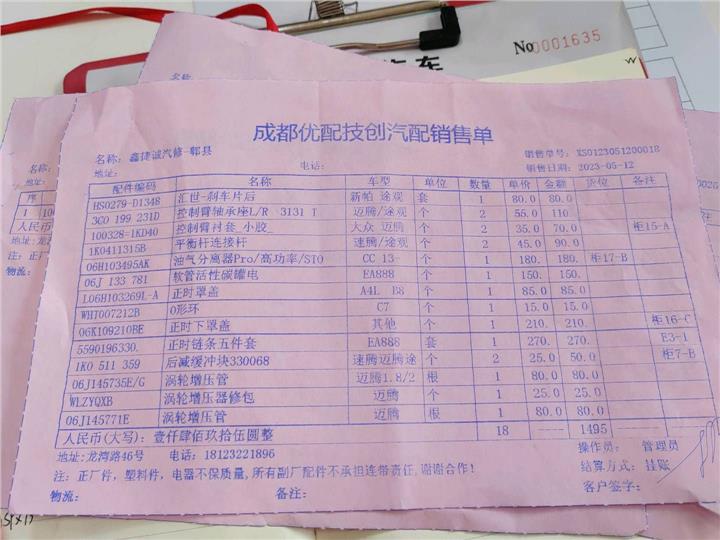 No 0001635
成都优配技创汽配销售单
名称: 鑫捷诚汽修-郫县 销售单号: XS0123051200018
地址: 电话: 销售日期: 2023-05-12
配件编码 名称 车型 单位 数量 单价 金额 货位 备注
HS0279-D1348 汇世-刹车片后 新帕 途观 套 1 80.0 80.0
3C0 199 231D 控制臂轴承座L/R 3131 T 迈腾/途观 个 2 55.0 110.
100328=1KD40 控制臂衬套_小胶_ 大众 迈腾 个 2 35.0 70.0 柜15-A
1K0411315B 平衡杆连接杆 速腾/途观 个 2 45.0 90.0
06H103495AK 油气分离器Pro/高功率/STO CC 13- 个 1 180. 180. 柜17-B
06J 133 781 软管活性碳罐电 EA888 个 1 150. 150.
L06H103269L-A 正时罩盖 A4L B8 个 1 85.0 85.0
WHT007212B O形环 C7 个 1 15.0 15.0
06K109210BE 正时下罩盖 其他 个 1 210. 210. 柜16-C
5590196330. 正时链条五件套 EA888 套 1 270. 270. E3-1
1K0 511 359 后减缓冲块330068 速腾迈腾途 个 2 25.0 50.0 柜7-B
06J145735E/G 涡轮增压管 迈腾1.8/2 根 1 80.0 80.0
WLZYQXB 涡轮增压器修包 迈腾 个 1 25.0 25.0
06J145771E 涡轮增压管 迈腾 根 1 80.0 80.0
人民币(大写): 壹仟肆佰玖拾伍圆整 18 1495
地址:龙湾路46号 电话: 18123221896 操作员: 管理员
注: 正厂件, 塑料件, 电器不保质量, 所有副厂配件不承担连带责任, 谢谢合作! 结算方式: 挂账
物流: 备注: 客户签字: